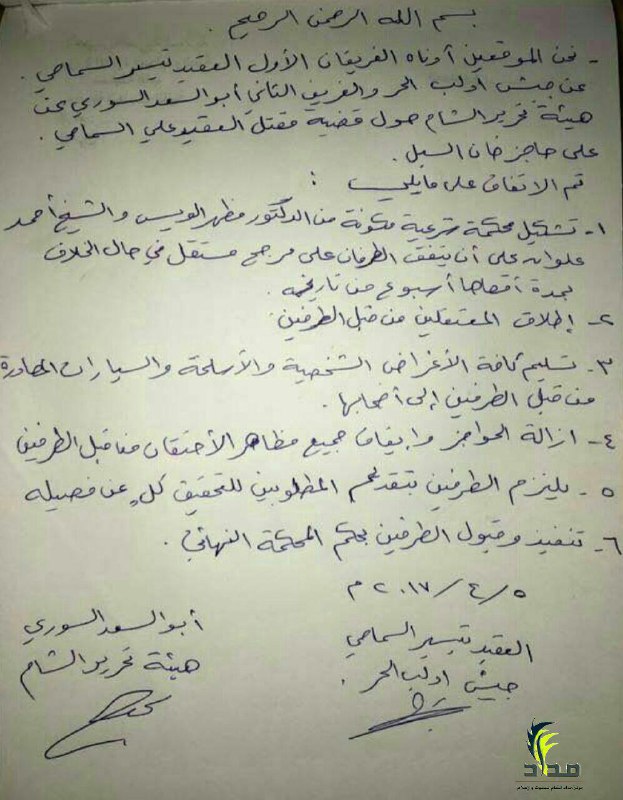 بسم الله الرحمن الرحيم .
- نحن الموقعين أدناه الفريقان الأول العقيد تيسير السماحي .
عن جيش أدلب الحر والفريق الثاني أبو السعد السوري عن
هيئة تحرير الشام حول قضية مقتل العقيد علي السماحي .
على حاجز خان السبل .
تم الاتفاق على مايلي :
١- تشكيل محكمة شرعية مكونة من الدكتور مظهر الويس والشيخ أحمد
علوان على أن يتفق الطرفان على مرجح مستقل في حال الخلاف
بمدة أقصاها أسبوع من تاريخه .
٢- إطلاق المعتقلين من قبل الطرفين .
٣- تسليم كافة الأغراض الشخصية والأسلحة والسيارات المصادرة
من قبل الطرفين إلى أصحابها .
٤- ازالة الحواجز وإيقاف جميع مظاهر الأحتقان من قبل الطرفين
٥- يلتزم الطرفين بتقديم المطلوبين للتحقيق كلٍ عن فصيله
٦- تنفيذ وقبول الطرفين بحكم المحكمة النهائي .
٥/٤/٢٠١٧ م
العقيد تيسير السماحي
جيش إدلب الحر .
أبو السعد السوري
هيئة تحرير الشام
مداد